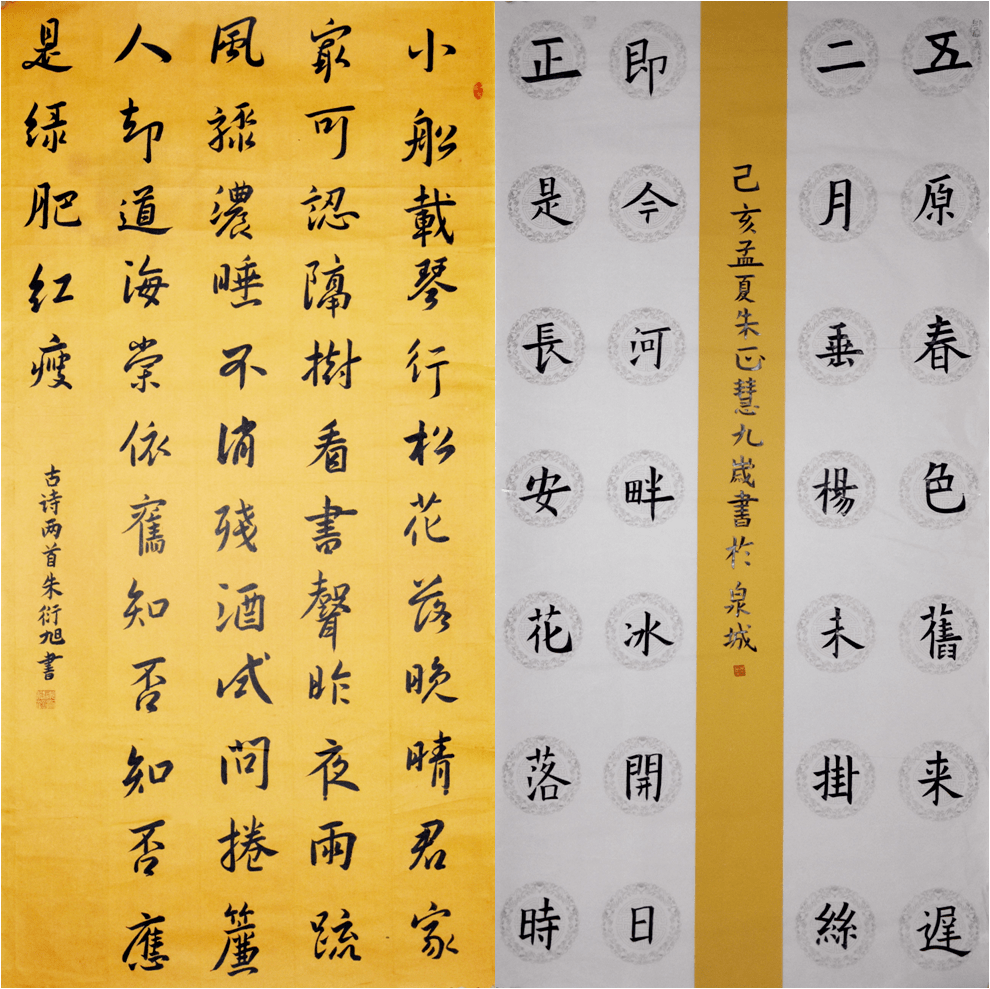 五原春色舊来遲
二月垂楊未掛絲
己亥孟夏朱正慧九歲書於泉城
即今河畔冰開日
正是長安花落時
小船載琴行松花落晚晴君家
最可認隔樹看書聲昨夜雨疏
風驟濃睡不消殘酒试問捲簾
人却道海棠依舊知否知否應
是绿肥红瘦
古诗两首朱衍旭書